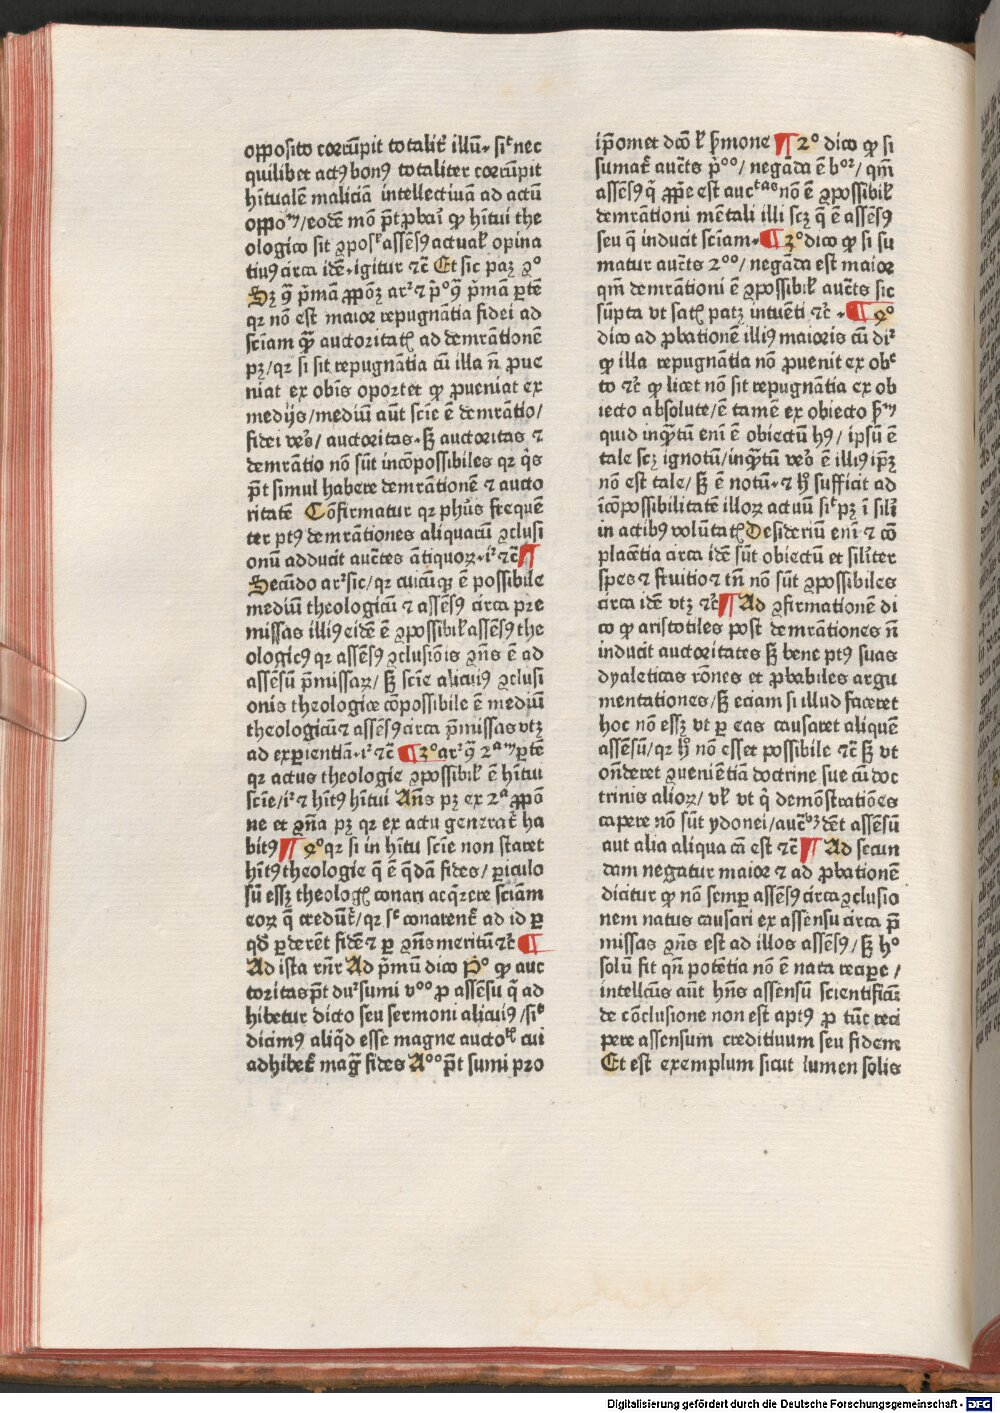 opposito corrūpit totalit̄ illū. siᵗ nec
quilibet actꝰ bonꝰ totaliter corrūpit
hītualem maliciā intellectiuā ad actū
oppoᵐ/eodē mō p̄t ꝓbari ꝙ hītui the
ologico sit ꝯposᵗ assēsꝰ actualꝭ opina
tiuꝰ circa idē. igitur ⁊c̄ Et sic paꝫ ꝯᵒ
Sꝫ ꝯ̄ p̄mā ꝓpōꝫ arʳ ⁊ p̄ᵒ ꝯ̄ p̄mā ꝑtē
qꝛ nō est maior repugnātia fidei ad
sciam ꝙ̄ auctoritatꝭ ad demrātionē
pꝫ/qꝛ si sit repugnātia cū illa n̄ ꝓue
niat ex obīs oportet ꝙ ꝓueniat ex
medijs/mediū aūt scīe ē demrātio/
fidei veꝛ̄o/ auctoritas. sꝫ auctoritas ⁊
demrātio nō sūt incōpossibiles qꝛ qͥs
p̄t simul habere demrātionē ⁊ aucto
ritatē Cōfirmatur qꝛ phūs frequē
ter ptꝰ demrātiones aliquarū ꝯclusi
onū adducit auctēs ātiquoꝝ. iʳ ⁊c̄ ¶
Secūdo arʳ sic/qꝛ cuicūqꝫ ē possibile
mediū theologicū ⁊ assēsꝰ circa pre
missas illiꝰ eidē ē ꝯpossibilꝭ assēsꝰ the
ologicꝰ qꝛ assēsꝰ ꝯclusiōis ꝯn̄s ē ad
assēsū p̄missaꝝ/ sꝫ scīe alicuiꝰ ꝯclusi
onis theologice cōpossibile ē mediū
theologicū ⁊ assēsꝰ circa p̄missas vtꝫ
ad experientiā. iʳ ⁊c̄ ¶ 3ᵒ arʳ ꝯ̄ 2ᵃᵐ ꝑtē
qꝛ actus theologie ꝯpossibilꝭ ē hītui
scīe/iʳ ⁊ hītꝰ hītui Ān̄s pꝫ ex 2ᵃ ꝓpō
ne et ꝯn̄a pꝫ qꝛ ex actu generat̄ ha
bitꝰ ¶ 4ᵒ qꝛ si in hītu scīe non staret
hītꝰ theologie q̄ ē q̄dā fides/ ꝑiculo
sū essꝫ theologꝭ conari acq̄rere sciām
eoꝝ q̄ credūt̄/qꝛ sᶜ conarent̄ ad id ꝑ
qd̄ ꝑderēt fidē ⁊ ꝑ ꝯn̄s meritū ⁊c̄ ¶
Ad ista rn̄r Ad p̄mū dico pᵒ ꝙ auc
toritas p̄t duʳ sumi vᵒᵒ ꝓ assēsu q̄ ad
hibetur dicto seu sermoni alicuiꝰ/siᶜ
dicimꝰ aliq̄d esse magne auctoᵗ cui
adhibet̄ mag̃ fides Aᵒᵒ p̄t sumi pro
ip̄omet dcō lꝭ ẜmone ¶ 2ᵒ dico ꝙ si
sumat̄ auctēs p̄ᵒᵒ/ negāda ē boʳ/ qm̄
assēsꝰ q̄ ꝓpe est aucᵗᵃˢ nō ē ꝯpossibilꝭ
demrātioni mētali illi scꝫ q̄ ē assēsꝰ
seu q̄ inducit sciam. ¶ 3ᵒ dico ꝙ si su
matur auctēs 2ᵒᵒ/ negāda est maior
qm̄ demrātioni ē ꝯpossibilꝭ auctēs sic
sūpta vt satꝭ patꝫ intuēti ⁊c̄ . ¶ 4ᵒ
dico ad ꝓbationē illiꝰ maioris cū diʳ
ꝙ illa repugnātia nō ꝓuenit ex obᶜ
to ⁊c̄ ꝙ licet nō sit repugnātia ex ob
iecto absolute/ē tamē ex obiecto ẜᵐ
quid inq̄tū eni ē obiectū hꝰ/ ipsū ē
tale scꝫ ignotū/inq̄tū veꝛ̄o ē illiꝰ ipꝫ
nō est tale/ sꝫ ē notū. ⁊ hͦ sufficit ad
īcōpossibilitatē illoꝝ actuū siᵗ pꝫ ī silꝭ
in actibꝰ volūtatꝭ Desideriū eni ⁊ cō
placētia circa idē sūt obiectū et siliter
spes ⁊ fruitio ⁊ tn̄ nō sūt ꝯpossibiles
circa idē vtꝫ ⁊c̄ ¶ Ad ꝯfirmationē di
co ꝙ aristotiles post demrātiones n̄
inducit auctoritates sꝫ bene ptꝰ suas
dyaleticas rōnes et ꝓbabiles argu
mentationes/ sꝫ eciam si illud faceret
hoc nō essꝫ vt ꝑ eas causaret aliquē
assēsū/qꝛ hͦ nō esset possibile ⁊c̄ sꝫ vt
ōnderet ꝯueniētiā doctrine sue cū doc
trinis alioꝝ/ vlꝭ vt q̄ demōstratiōes
capere nō sūt ydonei/auctꝫ dēt assēsū
aut alia aliqua cā est ⁊c̄ ¶ Ad secun
dam negatur maior ⁊ ad ꝓbationē
dicitur ꝙ nō semꝑ assēsꝰ circa ꝯclusio
nem natus causari ex assensu circa p̄
missas ꝯn̄s est ad illos assēsꝰ/ sꝫ hᵒ
solū fit qn̄ potētia nō ē nata recipe /
intellcūs aūt hn̄s assēsū scientificū
de cōclusione non est aptꝰ ꝓ tūc reci
pere assensum creditiuum seu fidem
Et est exemplum sicut lumen solis
Digitalisierung gefördert durch die Deutsche Forschungsgemeinschaft - DFG